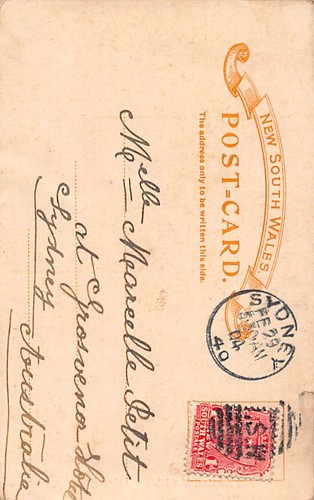 NEW SOUTH WALES.
POST=CARD.
The address only to be written this side.
SYDNEY
FE 29
5 30 AM
04
40
N.S.W
SOUTH WALES
1D
Mlle Marcelle Petit
at Grosveno Hotel
Sydney
Australia